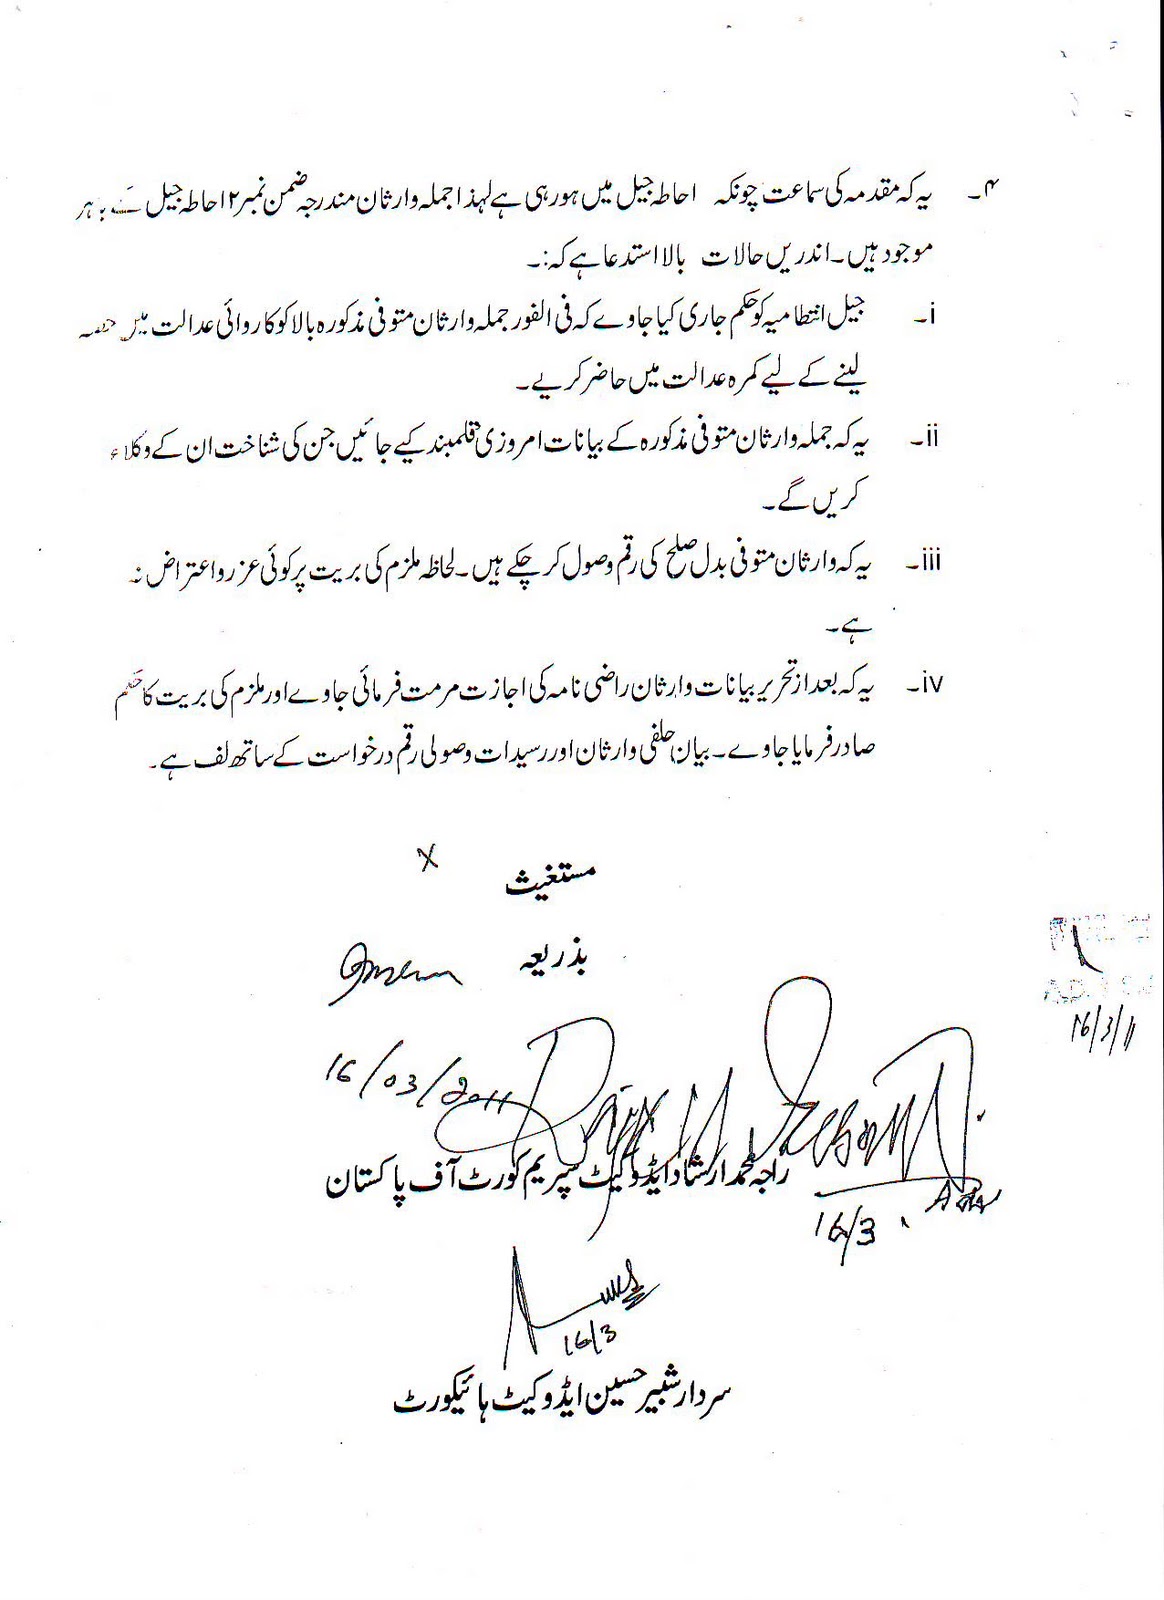 ۴۔ یہ کہ مقدمہ کی سماعت چونکہ احاطہ جیل میں ہورہی ہے لہذا جملہ وارثان مندرجہ ضمن نمبر ۲ احاطہ جیل سے باہر
موجود ہیں۔ اندریں حالات بالا استدعا ہے کہ:۔
i۔ جیل انتظامیہ کو حکم جاری کیا جاوے کہ فی الفور جملہ وارثان متوفی مذکورہ بالا کو کاروائی عدالت میں حصہ
لینے کے لیے کمرہ عدالت میں حاضر کریے۔
ii۔ یہ کہ جملہ وارثان متوفی مذکورہ کے بیانات امروزی قلمبند کیے جائیں جن کی شناخت ان کے وکلاء
کریں گے۔
iii۔ یہ کہ وارثان متوفی بدل صلح کی رقم وصول کر چکے ہیں۔ لحاظہ ملزم کی بریت پر کوئی عزر و اعتراض نہ
ہے۔
iv۔ یہ کہ بعد از تحریر بیانات وارثان راضی نامہ کی اجازت مرمت فرمائی جاوے اور ملزم کی بریت کا حکم
صادر فرمایا جاوے۔ بیان حلفی وارثان اور رسیدات وصولی رقم درخواست کے ساتھ لف ہے۔
X مستغیث
بذریعہ
16/3/11
16/03/2011
راجہ محمد ارشاد ایڈوکیٹ سپریم کورٹ آف پاکستان
16/3
16/3
سردار شبیر حسین ایڈوکیٹ ہائیکورٹ